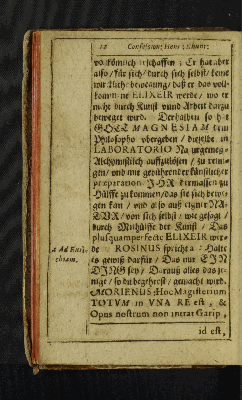 12 Confession; Hans; Khunr:
volkömlich erschaffen; Er hat aber
also / für sich / durch sich selbst / keine
würckliche bewegung / daß er das voll-
kommne ELIXEIR werde / wo er
nicht durch Kunst vnnd Arbeit darzu
beweget wird. Derhalben so hat
GOTT MAGNESIAM dem
Philosopho vbergeben / dieselbe in
LABORATORIO Naturgemeß-
Alchymistisch auffzulösen / zu reini-
gen / vnd mit gebührender künstlicher
præparation IHR dermassen zu
Hülffe zukommen / das sie sich bewe-
gen kan / vnd also auß eigner NA-
TVR / von sich selbst / wie gesagt /
durch Mithülffe der Kunst / Das
plusquamperfecte ELIXEIR wer-
de a ROSINUS spricht: Halte
a Ad Euti-
chiam.
es gewiß darfür / Das nur EIN
DING sey / Darauß alles das je-
nige / so du begehrest / gemacht wird.
MORIENUS: Hoc Magisterium
TOTVM in VNA RE est, &
Opus nostrum non intrat Garip,
id est,